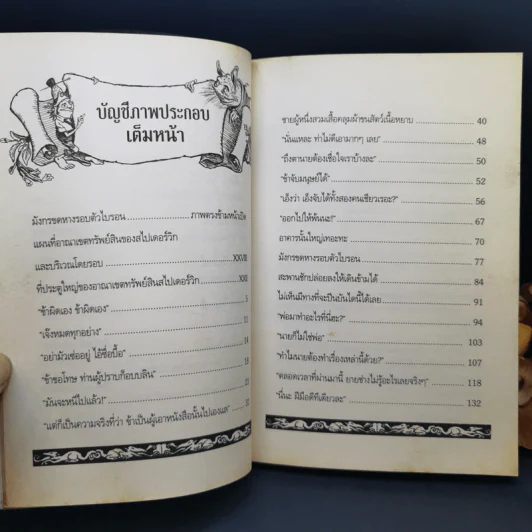 บัญชีภาพประกอบ
เต็มหน้า
มังกรขดหางรอบตัวไบรอน ภาพตรงข้ามหน้าเปิด
แผนที่อาณาเขตทรัพย์สินของสไปเดอร์วิก
และบริเวณโดยรอบ XXVIII
ที่ประตูใหญ่ของอาณาเขตทรัพย์สินสไปเดอร์วิก XXI
“ข้าผิดเอง ข้าผิดเอง” 5
“เจ๊งหมดทุกอย่าง” 11
“อย่ามัวเซ่ออยู่ ไอ้ซื่อบื้อ” 14
“ข้าขอโทษ ท่านผู้ปราบก็อบบลิน” 18
“มันจะหนีไปแล้ว!”
“แต่ก็เป็นความจริงที่ว่า ข้าเป็นผู้เอาหนังสือนั้นไปเองแล”
ชายผู้หนึ่งสวมเสื้อคลุมผ้าขนสัตว์เนื้อหยาบ 40
“นั่นแหละ ทำไม่ดีเอามากๆ เลย” 48
“ถึงตานายต้องเชื่อใจเราบ้างละ” 50
“ข้าจับมนุษย์ได้” 52
“เอ็งว่า เอ็งจับได้ทั้งสองคนเชียวเรอะ?” 56
“ออกไปให้พ้นนะ!” 67
อาคารนั้นใหญ่เทอะทะ 70
มังกรขดหางรอบตัวไบรอน 77
สะพานชักปล่อยลงให้เดินข้ามได้ 84
ไม่เห็นมีทางที่จะปีนบันไดนี้ได้เลย 91
“พ่อมาทำอะไรที่นี่ฮะ?” 94
“นายก็ไม่ใช่พ่อ” 103
“ทำไมนายต้องทำเรื่องเหล่านี้ด้วย?” 107
“ตลอดเวลาที่ผ่านมานี้ ยายช่างไม่รู้อะไรเลยจริงๆ” 118
“นี่นะ ฝีมือดีทีเดียวละ” 132